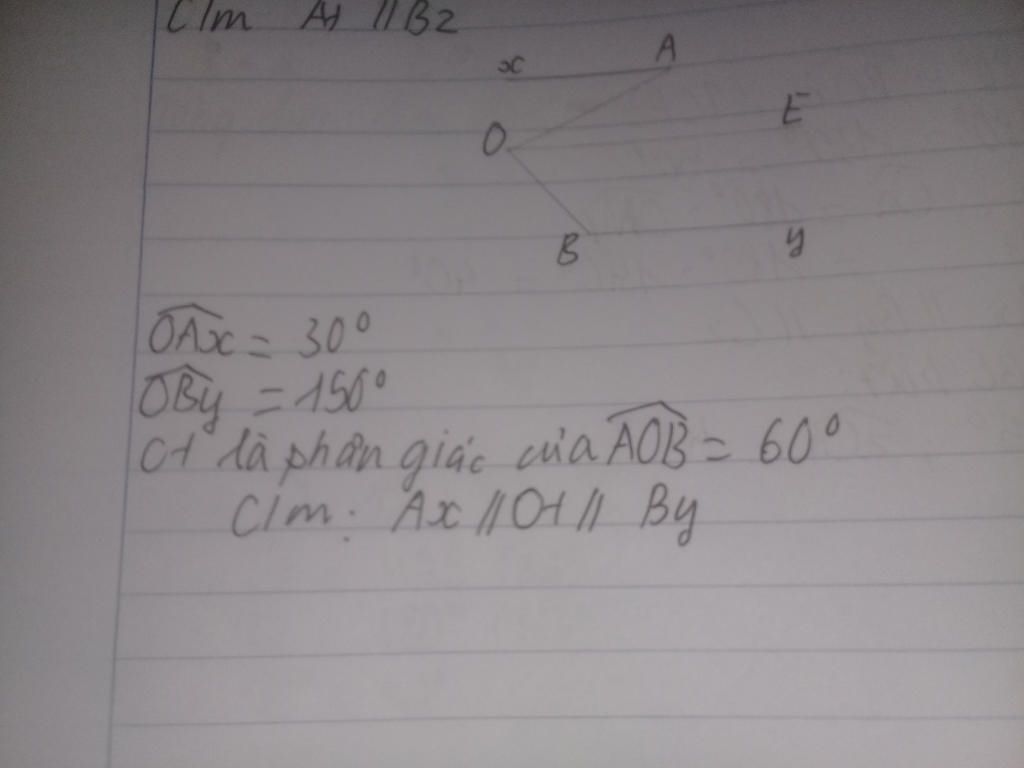 C/m At // Bz
x A
E
O
B y
OAx = 30°
OBy = 150°
Ot là phân giác của AOB = 60°
C/m: Ax // Ot // By